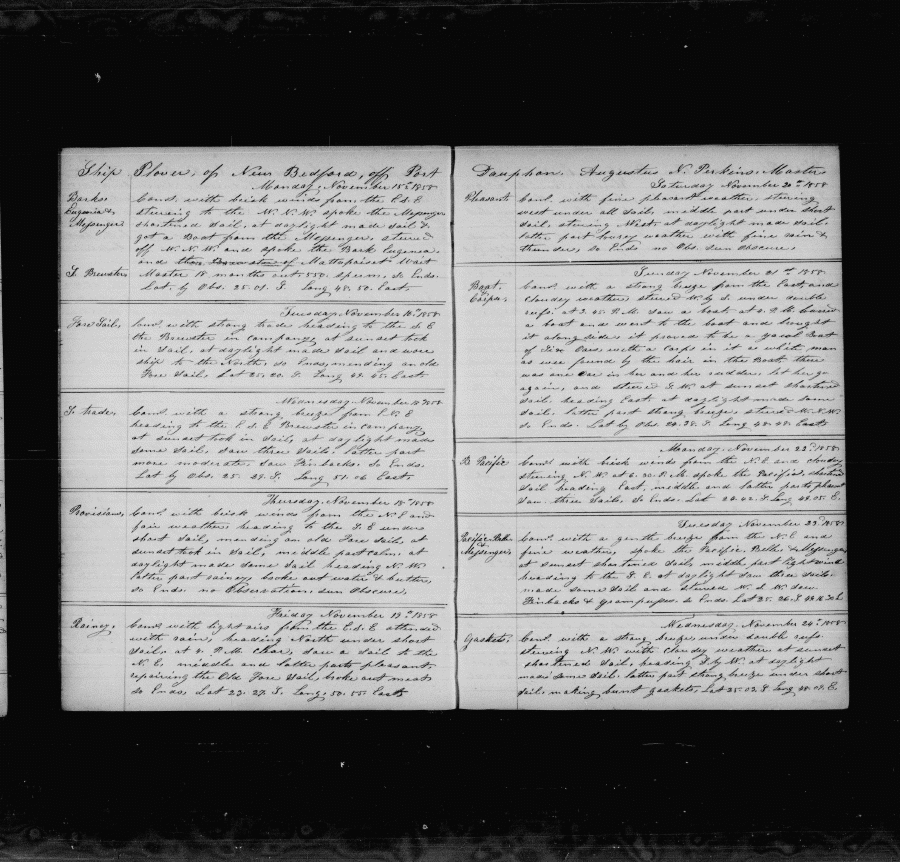 Ship Plover, of New Bedford, off Port
Monday, November 15th 1858
Barks
Eugenia &
Messenger
Comd. with brisk winds from the E.S.E
steering to the W.N.W. spoke the Messenger
shortened sail, at daylight made sail &
got a Boat from the Messenger, steered
off W.N.W. and spoke the Bark Eugenia.
and of Mattapoiset Wait
T. Brewster
Master 18 months out 550 sperm, So Ends.
Lat. by Obs. 25.01. S. Long 48.50. East.
Tuesday, November 16th 1858
Fore Sail.
Comd. with strong trade heading to the S.E
the Brewster in company, at sunset took
in Sail, at daylight made sail and wore
ship to the North, So Ends, mending an old
Fore Sail. Lat 25.20. S. Long 49.45. East
Wednesday, November 1858
S. trade,
Comd. with a strong breeze from E.N.E
heading to the E.S.E Brewster in company
at sunset took in Sail, at daylight made
some sail, saw three sails. latter part
more moderate, saw Finbacks. So Ends.
Lat by Obs. 25. 29. S. Long 51. 06 East.
Thursday, November 18th 1858
Provisions,
Comd. with brisk winds from the N.E and
fair weather heading to the S.E under
short sail, mending an old Fore Sail, at
sunset took in Sail, middle part calm, at
daylight made some sail heading N.W.
latter part rainey, broke out water & butter,
So Ends. no Observation, sun Obscure.
Friday November 19th 1858
Rainey,
Comd. with light airs from the E.S.E attended
with rain, heading North under short
Sail, at 4. P.M. Clear, saw a sail to the
N.E, middle and latter parts pleasant.
repairing the Old Fore Sail, broke out meat
So Ends, Lat 23. 27. S. Long, 50. 55 East
Dauphan. Augustus N. Perkins. Master
Saturday November 20th 1858
Pleasant
Comd. with fine pleasant weather, steering
west under all sail, middle part under short
sail, steering West, at daylight made sail,
latter part heavy weather, with fine rain &
thunder, So Ends no Obs. sun obscure,
Sunday November 21st 1858
Boat.
& Corps.
Comd. with a strong breeze from the East, and
cloudey weather steered W. by S. under double
reefs. at 2.45. P.M. Saw a boat, at 3. P.M.
a boat and went to the boat and brought
it along side, it proved to be a Boat
of Five Oars, with a Corps in it a white man
as was found by the hair in the Boat, there
was one Oar in her and her rudder, let her go
again, and steered S.W. at sunset shortened
sail. heading East, at daylight made some
sail. latter part strong breeze, steered W.N.W.
So Ends. Lat by Obs. 24. 38. S. Long 48. 48. East
Monday, November 22d, 1858.
B. Pacific
Comd. with brisk winds from the N.E and cloudey
steering N.W. at 6.30. P.M. spoke the Pacific, shortened
sail heading East, middle and latter parts pleasant
saw three Sails. So Ends. Lat 24. 42. S. Long 49. 05. E.
Tuesday, November 23d, 1858
Pacific Belle
& Messenger
Comd. with a genth breeze from the N.E and
fine weather, spoke the Pacific Belle & Messenger,
at sunset shortened sail, middle part light wind
heading to the S.E. at daylight saw three sails.
made some sail and steered W.S.W. saw
Finbacks & grampuses, So Ends, Lat 25. 26. S
Wednesday, November 24th 1858
Gaskets.
Comd. with a strong breeze, under double reefs
steering N.W. with cloudey weather at sunset
shortened sail, heading S. by W. at daylight
made some sail. latter part strong breeze under short
sail. making bunt gaskets. Lat 25. 02. S Long 48. 09. E.